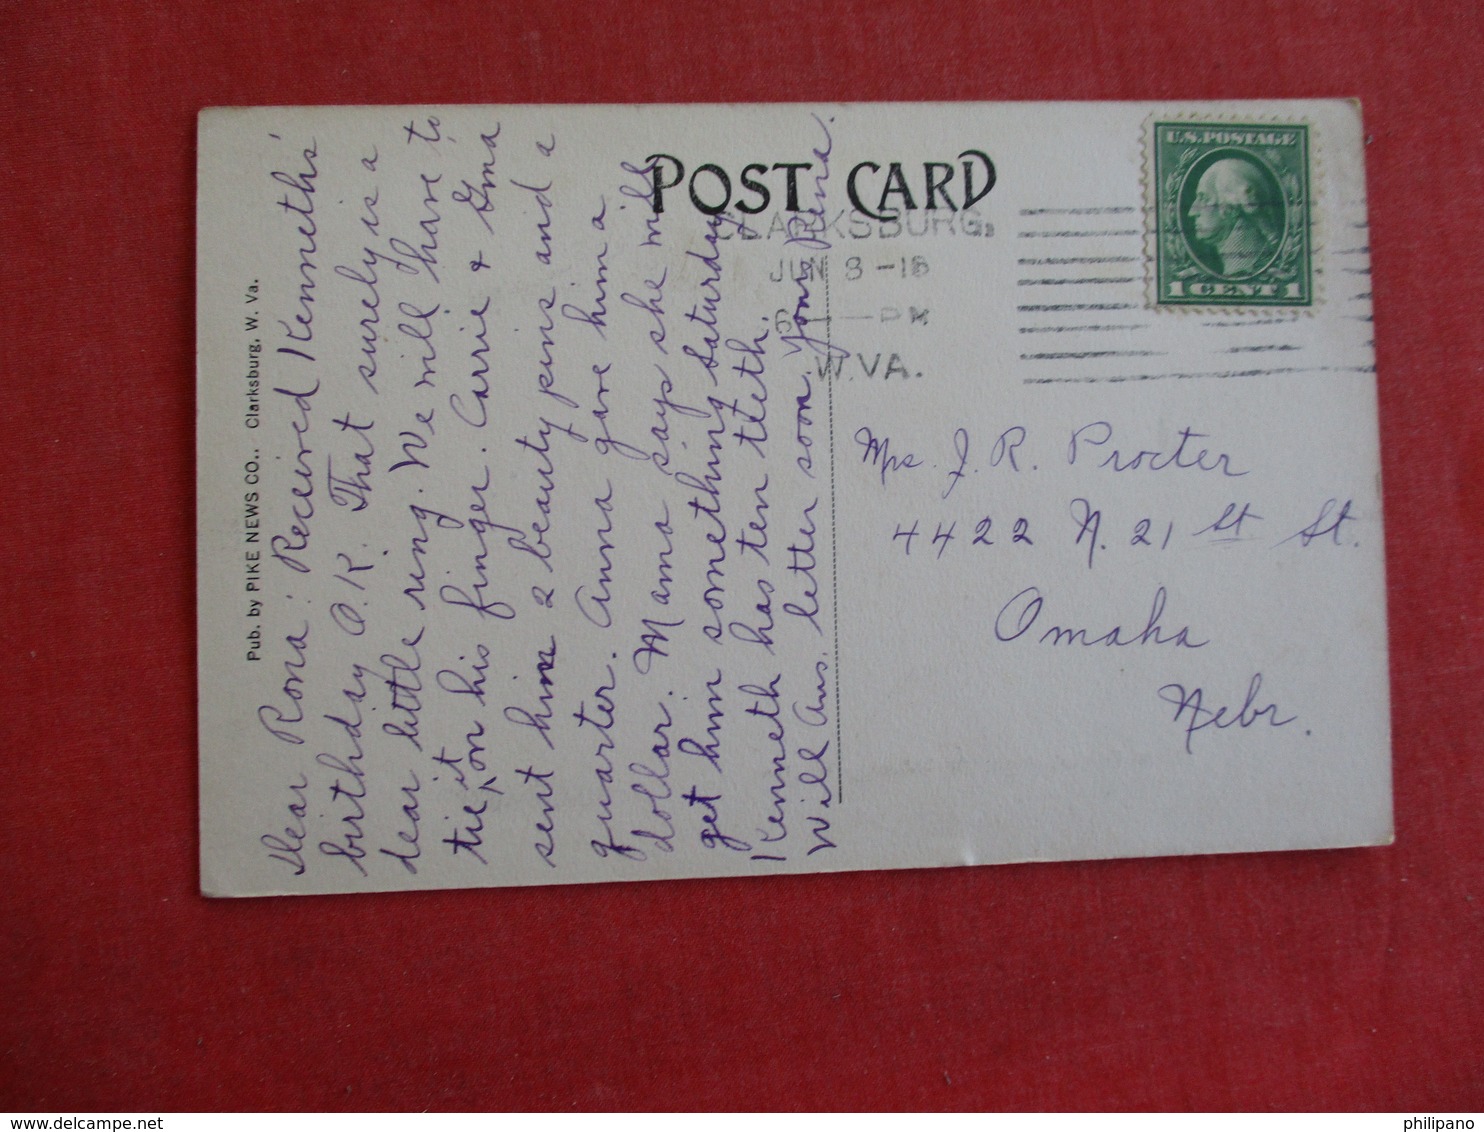 POST CARD
U.S. POSTAGE
1 CENT 1
CLARKSBURG,
JUN 3 -16
PM
W. VA.
Pub. by PIKE NEWS CO., Clarksburg, W. Va.
Dear Rona: Received Kenneths'
birthday O.K. That surely is a
dear little ring. We will have to
tie it on his finger. Carrie & Gma
sent him 2 beauty pins and a
quarter. Anna gave him a
dollar. Mama says she will
get him something Saturday
Kenneth has ten teeth.
Will Ans. letter soon. Yours Rena.
Mrs. J. R. Procter
4422 N. 21 st St.
Omaha
Nebr.
www.delcampe.net
philipano